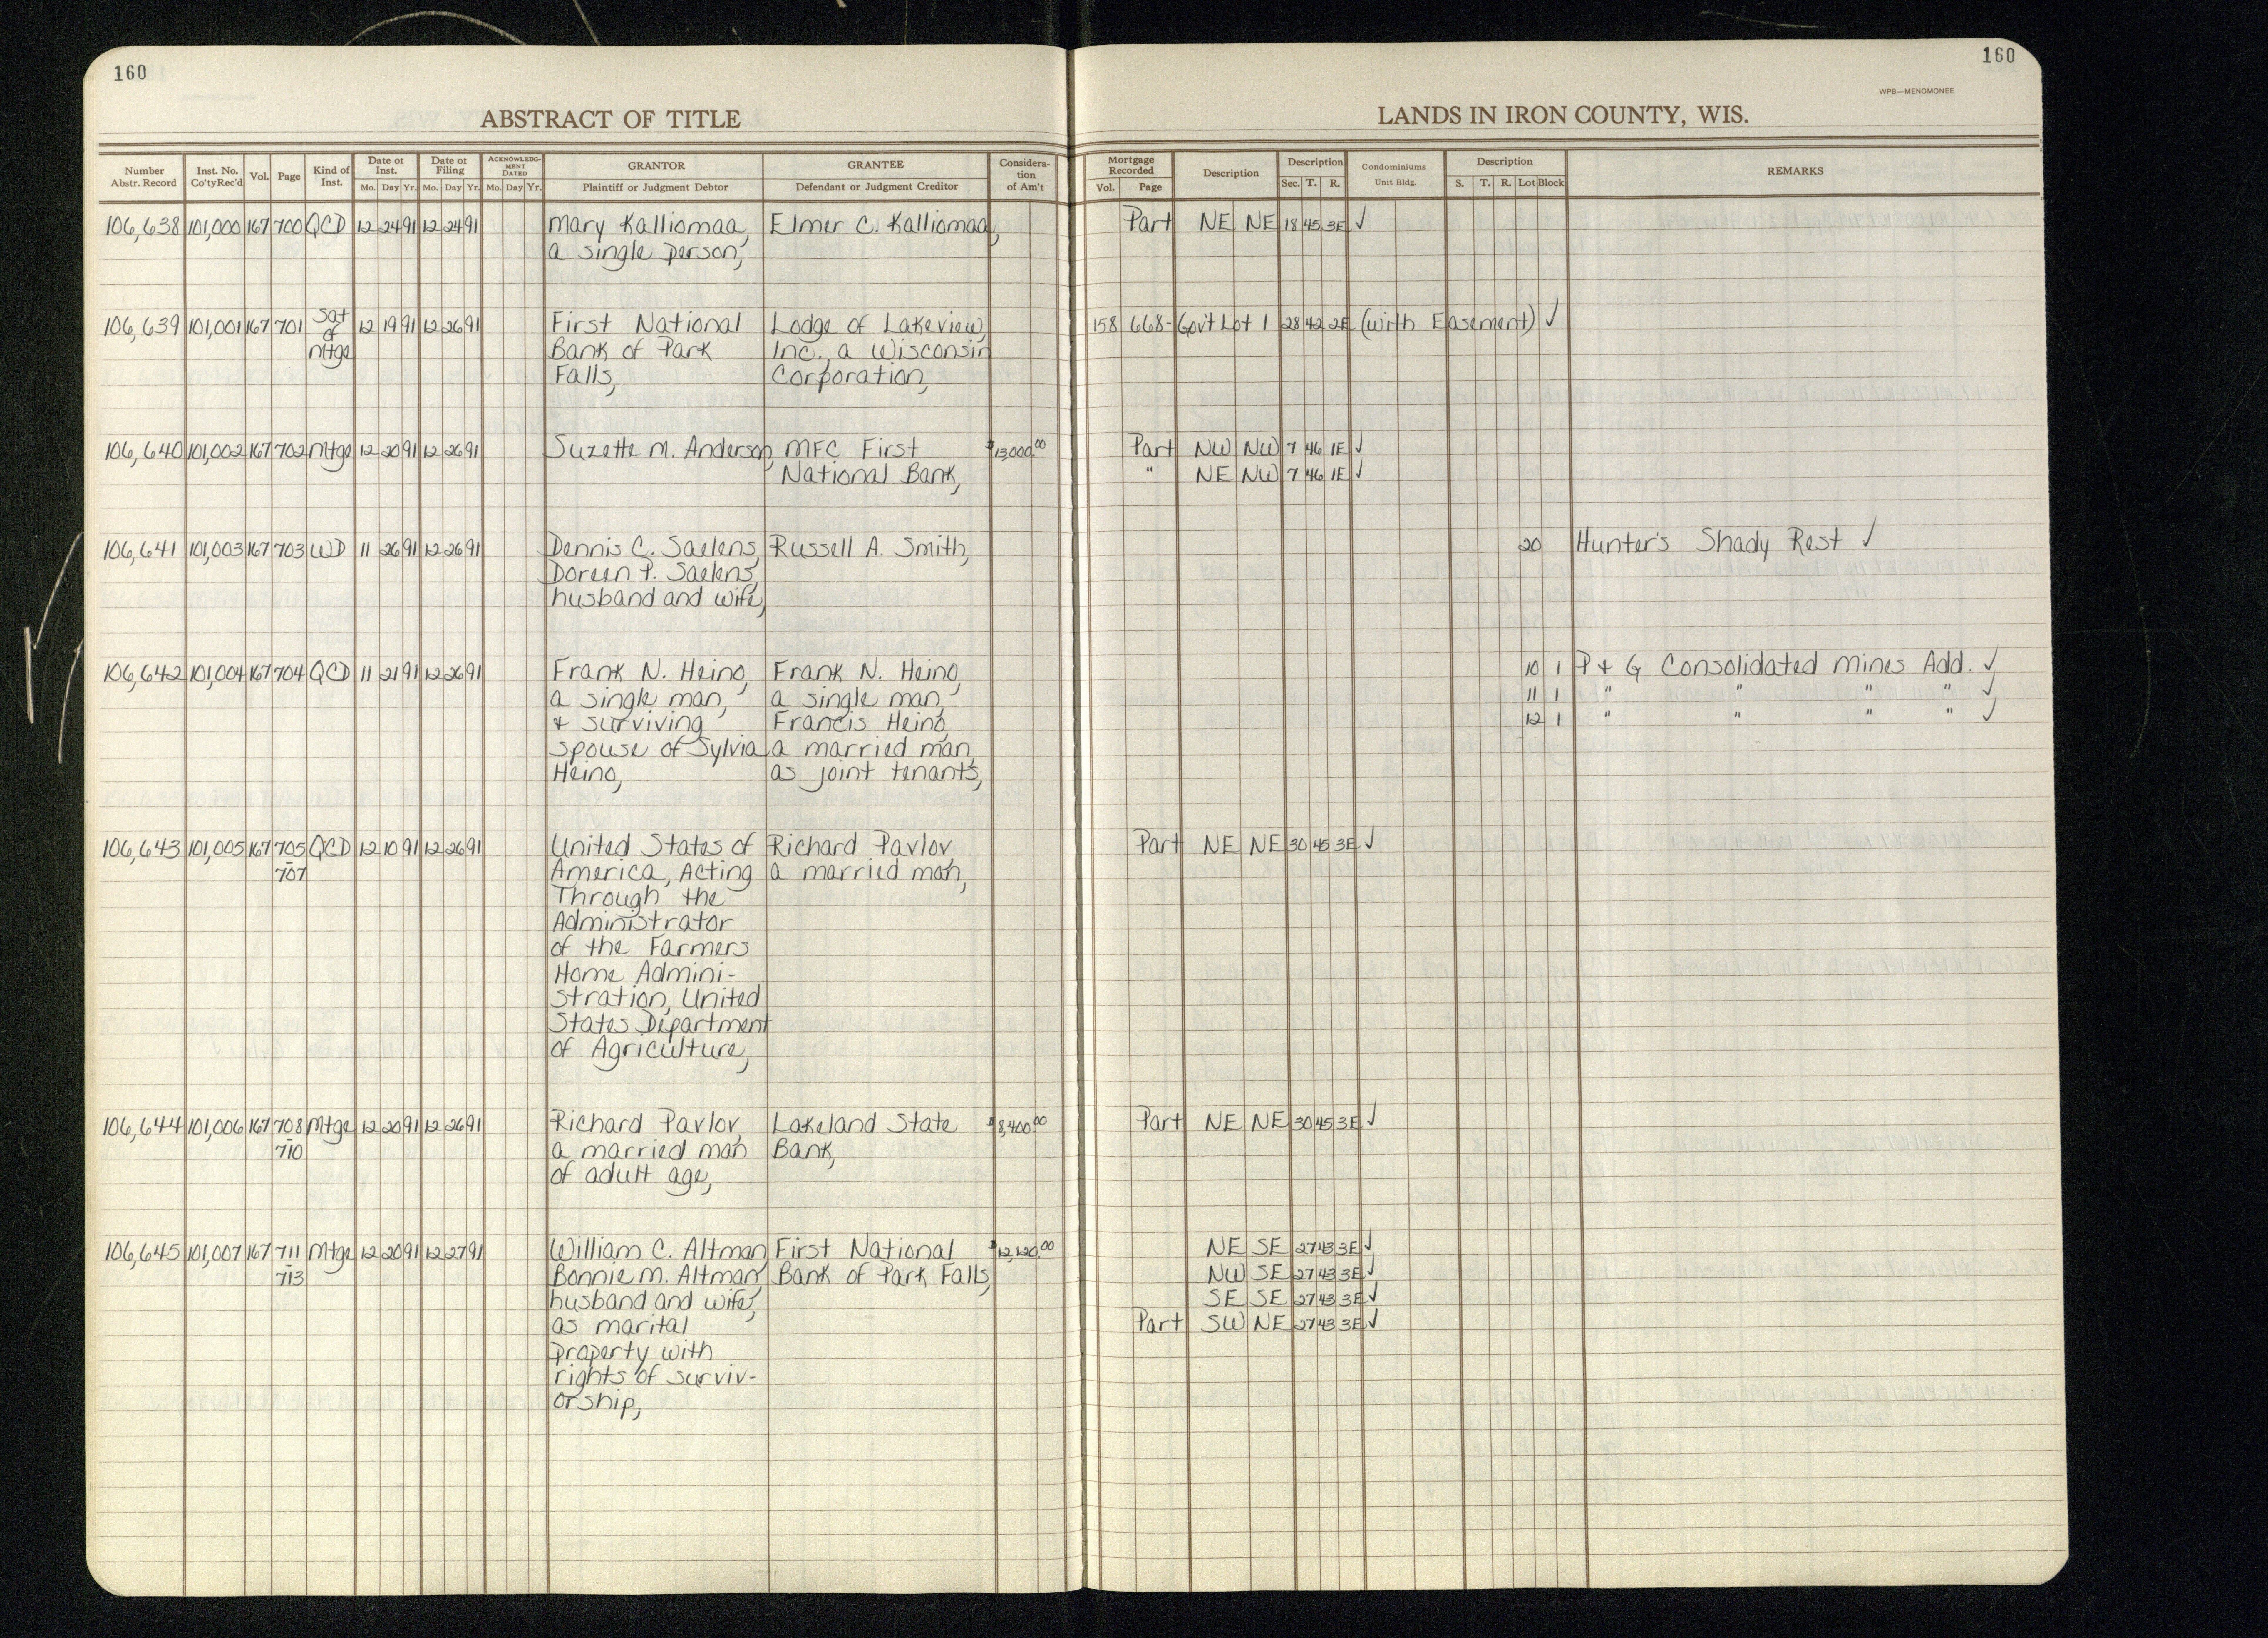 160
160
WPB—MENOMONEE
ABSTRACT OF TITLE
LANDS IN IRON COUNTY, WIS.
Number Abstr. Record
Inst. No. Co'ty Rec'd
Vol.
Page
Kind of Inst.
Date of Inst.
Mo. Day Yr.
Date of Filing
Mo. Day Yr.
ACKNOWLEDGMENT DATED
Mo. Day Yr.
GRANTOR
Plaintiff or Judgment Debtor
GRANTEE
Defendant or Judgment Creditor
Consideration of Am't
Mortgage Recorded
Vol. Page
Description
Description
Sec. T. R.
Condominiums
Unit Bldg.
Description
S. T. R. Lot Block
REMARKS
106,638 101,000 167 700 QCD 12 24 91 12 24 91 Mary Kalliomaa, Elmer C. Kalliomaa, Part NE NE 18 45 3E ✓
a single person,
106,639 101,001 167 701 Sat of Mtge 12 19 91 12 26 91 First National Lodge of Lakeview, 158 668- Gov't Lot 1 28 42 2E (with Easement) ✓
Bank of Park Inc., a Wisconsin
Falls, Corporation,
106,640 101,002 167 702 Mtge 12 20 91 12 26 91 Suzette M. Anderson, MFC First $13,000.00 Part NW NW 7 46 1E ✓
National Bank, " NE NW 7 46 1E ✓
106,641 101,003 167 703 WD 11 26 91 12 26 91 Dennis C. Saelens, Russell A. Smith, 20 Hunter's Shady Rest ✓
Doreen P. Saelens,
husband and wife,
106,642 101,004 167 704 QCD 11 21 91 12 26 91 Frank N. Heino, Frank N. Heino, 10 1 P & G Consolidated Mines Add. ✓
a single man, a single man, 11 1 " " " " ✓
& surviving Francis Heino, 12 1 " " " " ✓
spouse of Sylvia a married man,
Heino, as joint tenants,
106,643 101,005 167 705 - 707 QCD 12 10 91 12 26 91 United States of Richard Pavlov, Part NE NE 30 45 3E ✓
America, Acting a married man,
Through the
Administrator
of the Farmers
Home Admini-
stration, United
States Department
of Agriculture,
106,644 101,006 167 708 - 710 Mtge 12 20 91 12 26 91 Richard Pavlov, Lakeland State $8,400.00 Part NE NE 30 45 3E ✓
a married man Bank,
of adult age,
106,645 101,007 167 711 - 713 Mtge 12 20 91 12 27 91 William C. Altman, First National $12,120.00 NE SE 27 43 3E ✓
Bonnie M. Altman, Bank of Park Falls, NW SE 27 43 3E ✓
husband and wife, SE SE 27 43 3E ✓
as marital Part SW NE 27 43 3E ✓
property with
rights of surviv-
orship,